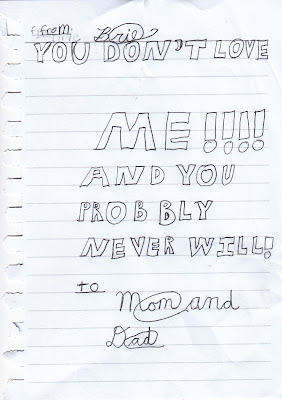 from: Brie
YOU DON'T LOVE
ME!!!!
AND YOU
PROBBLY
NEVER WILL!
to
Mom and
Dad